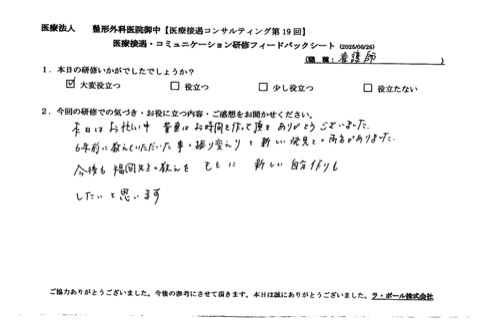 医療法人 整形外科医院御中【医療接遇コンサルティング第19回】
医療接遇・コミュニケーション研修フィードバックシート (2025/06/26)
(職 種: 看護師 )
1. 本日の研修いかがでしたでしょうか?
☑ 大変役立つ □ 役立つ □ 少し役立つ □ 役立たない
2. 今回の研修での気づき・お役に立つ内容・ご感想をお聞かせください。
本日はお忙しい中 貴重なお時間を作って頂き ありがとうございました。
6年前に教えていただいた事・振り変えり と 新しい発見と がありました。
今後も 福岡先生の教えを もとに 新しい自分作りも
したいと思います
ご協力ありがとうございました。今後の参考にさせて頂きます。本日は誠にありがとうございました。ラ・ポール株式会社